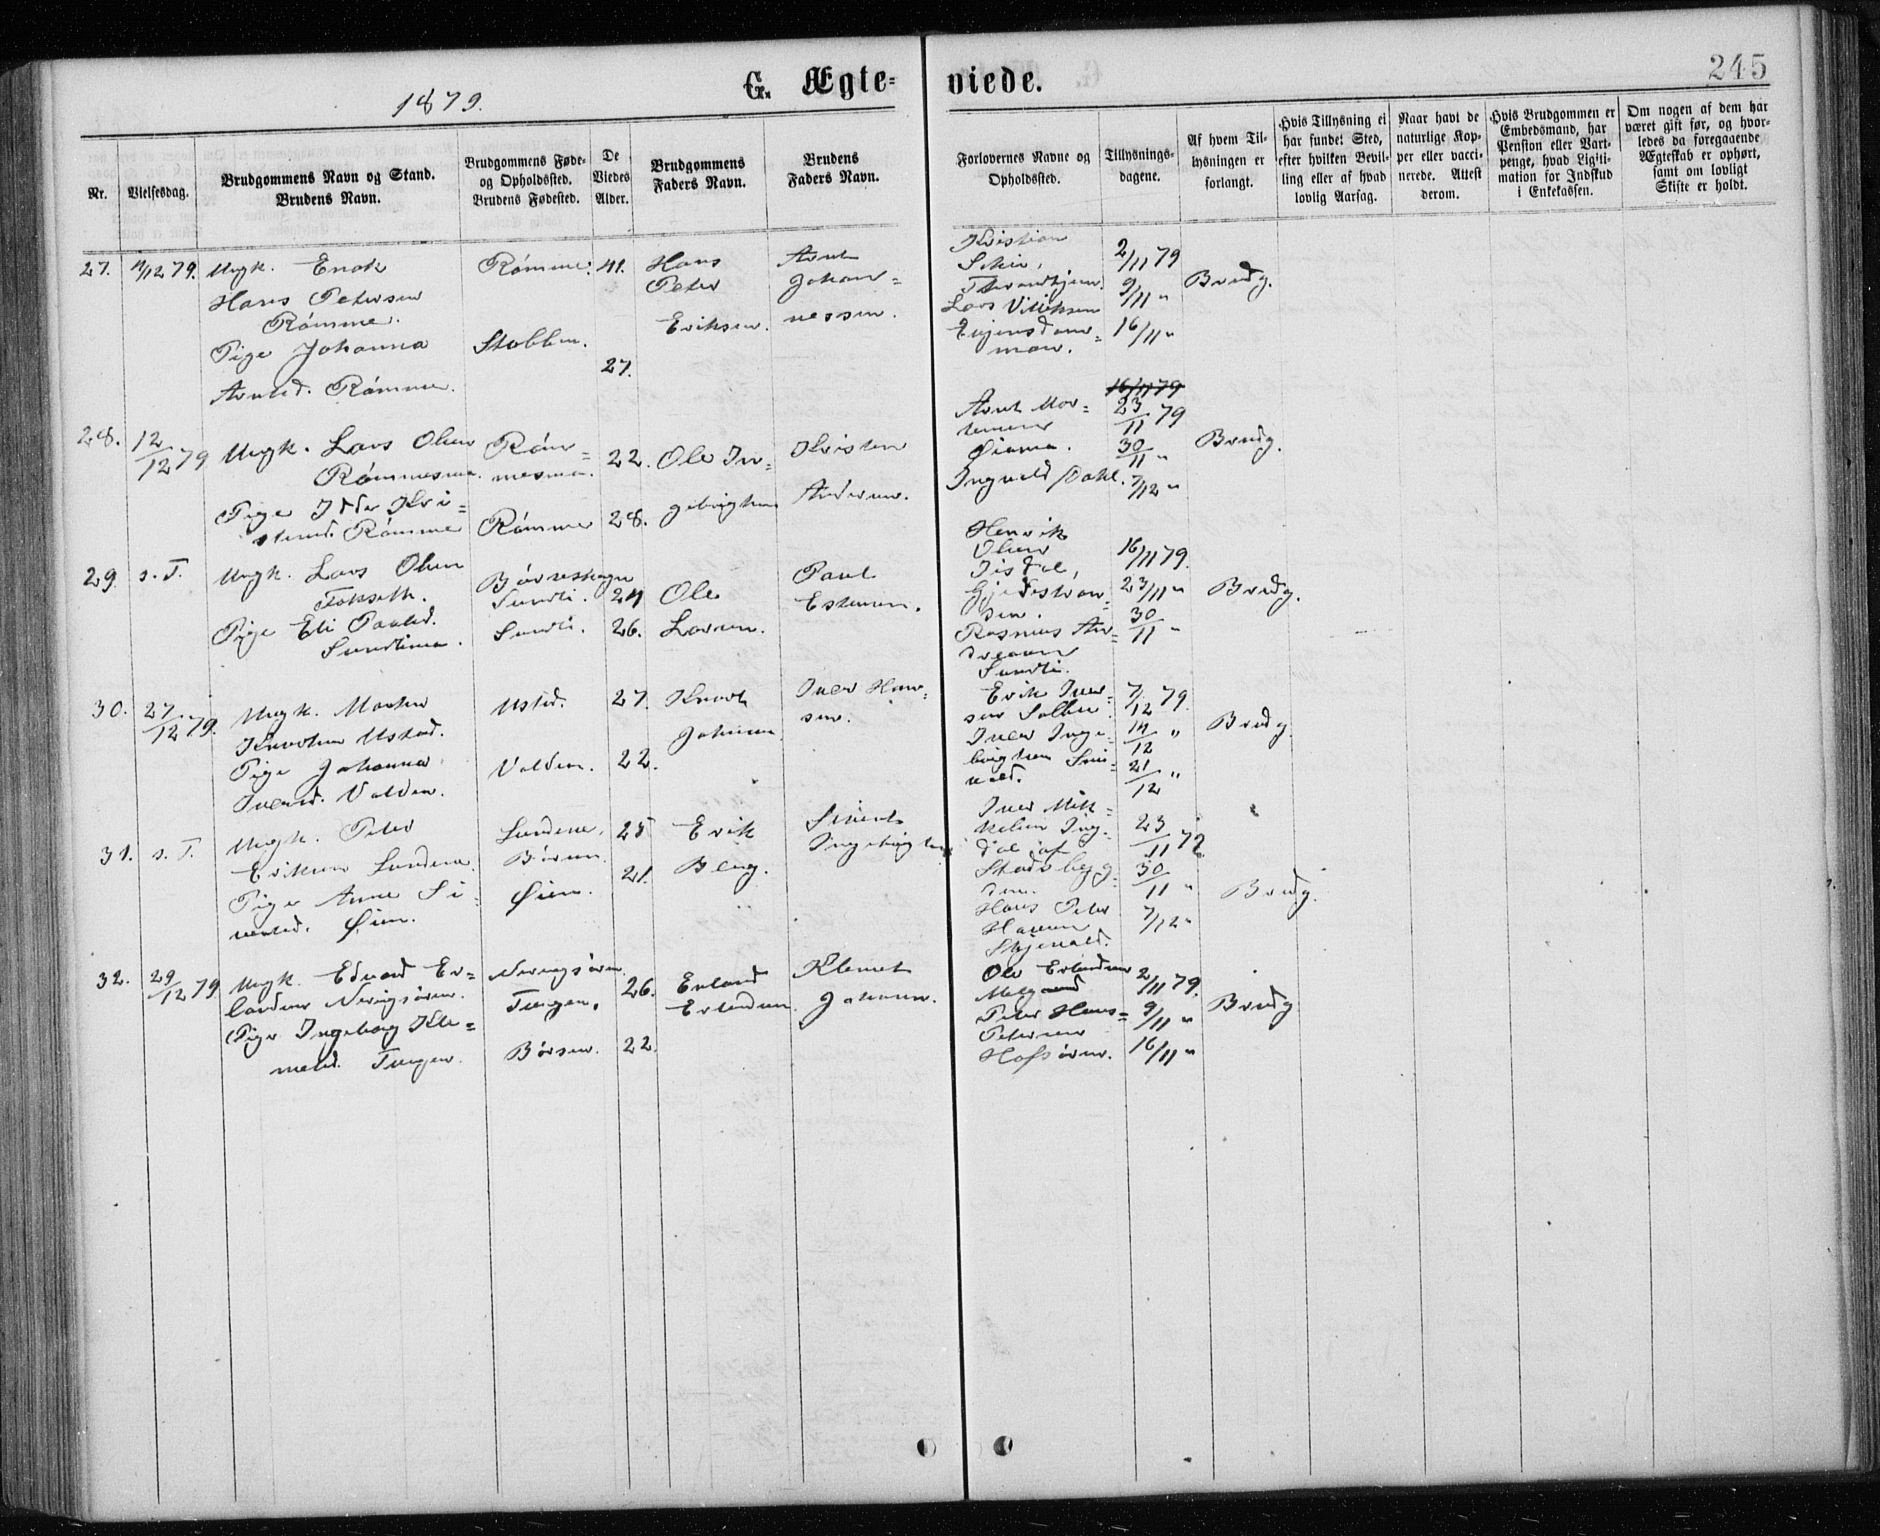 1879.
G. Ægte=
viede.
245
Nr.
Vielsesdag.
Brudgommens Navn og Stand.
Brudens Navn.
Brudgommens Føde-
og Opholdssted.
Brudens Fødested.
De
Viedes
Alder.
Brudgommens
Faders Navn.
Brudens
Faders Navn.
Forlovernes Navne og
Opholdssted.
Tillysnings-
dagene.
Af hvem Til-
lysningen er
forlangt.
Hvis Tillysning ei
har fundet Sted,
efter hvilken Bevil-
ling eller af hvad
lovlig Aarsag.
Naar havt de
naturlige Kop-
per eller vacci-
nerede. Attest
derom.
Hvis Brudgommen er
Embedsmand, har
Pension eller Vart-
penge, hvad Ligiti-
mation for Indskud
i Enkekassen.
Om nogen af dem har
været gift før, og hvor-
ledes da foregaaende
Ægteskab er ophørt,
samt om lovligt
Skifte er holdt.
27.
Ungk. Enok
Hans Petersen
Rømme.
Pige Johanna
Arntsd. Rømme.
Rømme.
Stobben.
41.
27.
Hans
Peter
Eriksen.
Arnt
Johan=
nessen.
Kristian
Throndhjem
Lars
man.
2/11 79
9/11 "
16/11 "
Brudg.
28.
12/12 79
Ungk. Lars Olsen
Rømmesmo.
Pige Kri=
stensd. Rømme
Røm=
mesmo.
Rømme
22.
28.
Ole In=
gebrigtsen
Kristen
Andersen.
Arnt Mor=
tensen
Øiamo.
Ingvald Dahl.
16/11 79
23/11 79
30/11 "
7/12 "
Brudg.
29
s. T.
Ungk. Lars Olsen
Pige Eli Paulsd.
Sundlimo.
Børseskogn
Sundli.
Sundli.
24
26.
Ole
Larsen.
Paul
Estensen.
Henrik
Olsen
sen.
Rasmus An=
dreasen
Sundli.
16/11 79
23/11 "
30/11 "
Brudg.
30.
27/12 79.
Ungk. Morten
Knudsen Ustad.
Pige Johanna
Iversd. Valden.
Ustad.
Valden.
27.
22.
Knudt
Johnsen
Iver Han=
sen.
Erik Iver=
sen Solbu.
Iver Inge=
brigtsen Sni=
7/12 79.
14/12 "
21/12 "
Brudg.
31.
s. T.
Ungk. Peter
Eriksen Lundemo.
Pige Anne Si=
vertsd. Øien.
Lundemo.
Børsen.
Øien.
25
21.
Erik
Berg.
Sivert
Ingebrigtsen
Iver Mik=
kelsen Ing=
dal af
Stadsbyg=
den.
Hans Peter
Hansen
23/11 79
30/11 "
7/12 "
Brudg.
32.
29/12 79
Ungk. Edvard Er=
landsen Nervigsøren.
Pige Ingeborg Kle=
metsd. Tungen.
Nervigsøren
Tungen.
Børsen.
26.
22.
Erland
Erlandsen
Klemet
Johnsen.
Ole Erlandsen
Peter Hans=
Petersen
Hofsøren.
2/11 79.
9/11 "
16/11 "
Brudg